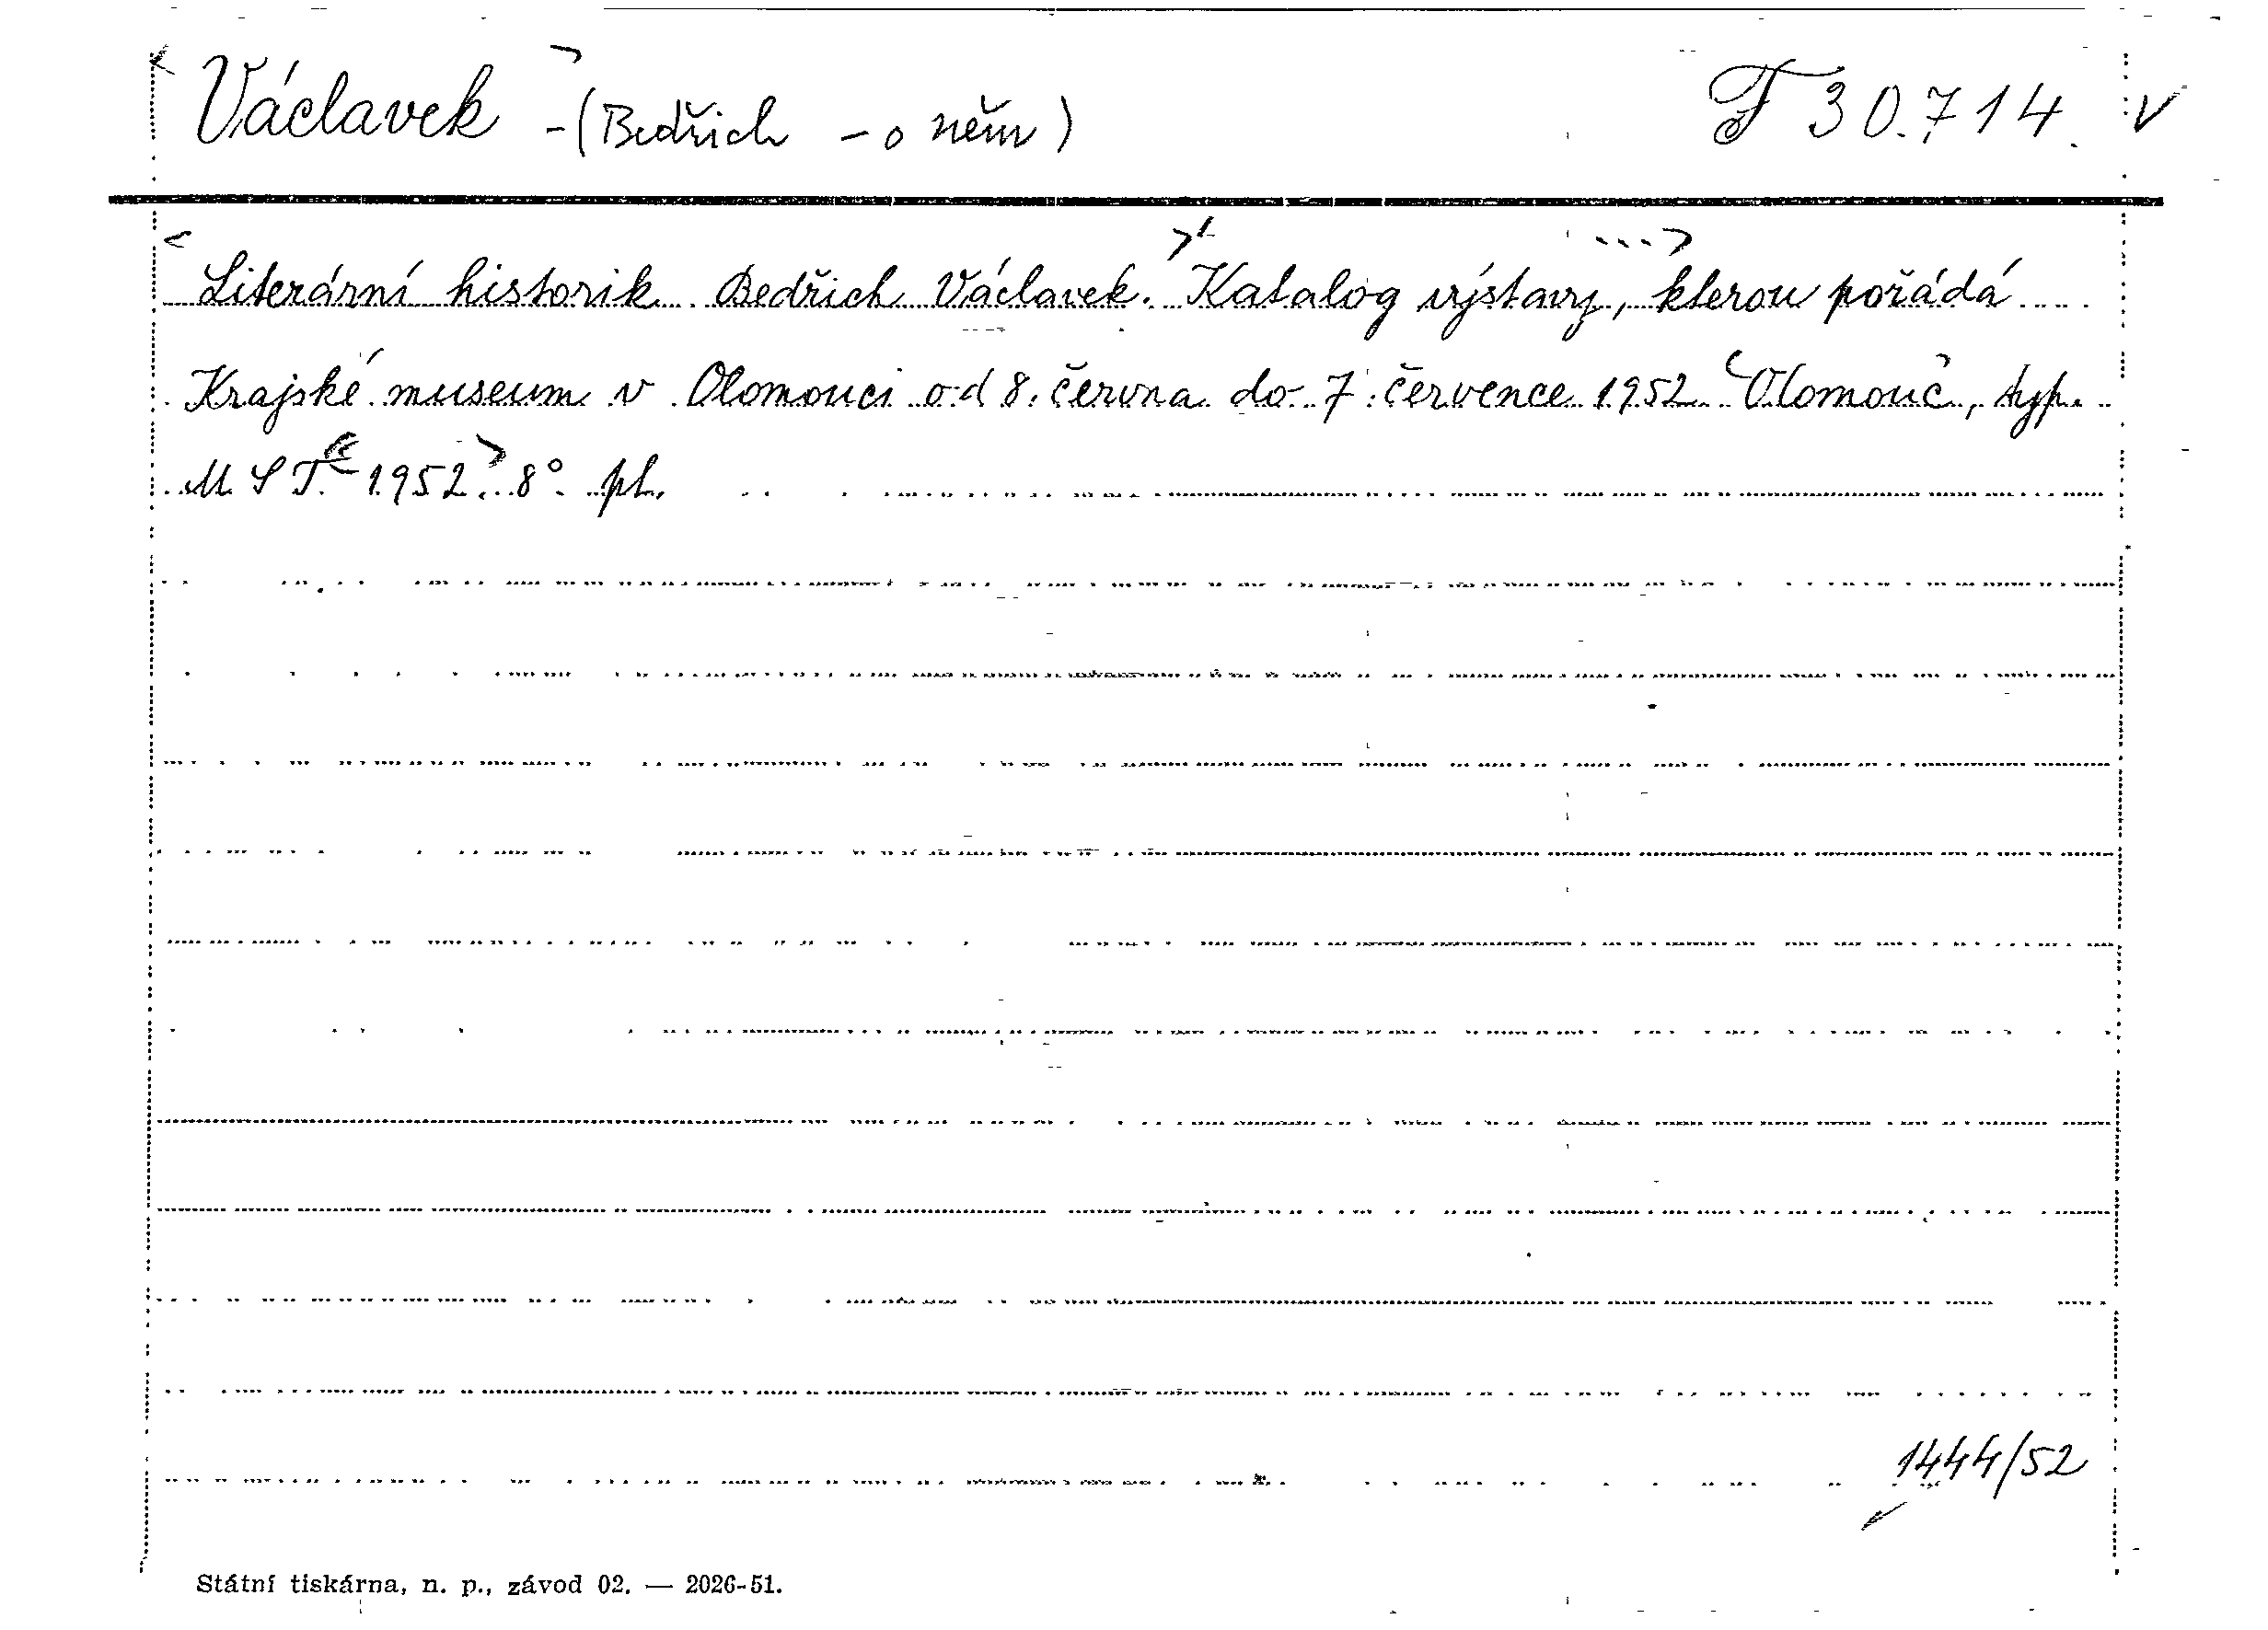 Václavek - (Bedřich - o něm) F 30.714.
Literární historik Bedřich Václavek. Katalog výstavy, kterou pořádá
Krajské museum v Olomouci od 8. června do 7. července 1952. Olomouc, typ.
M S T. 1952. 8°. pl.
1444/52
Státní tiskárna, n. p., závod 02. — 2026-51.